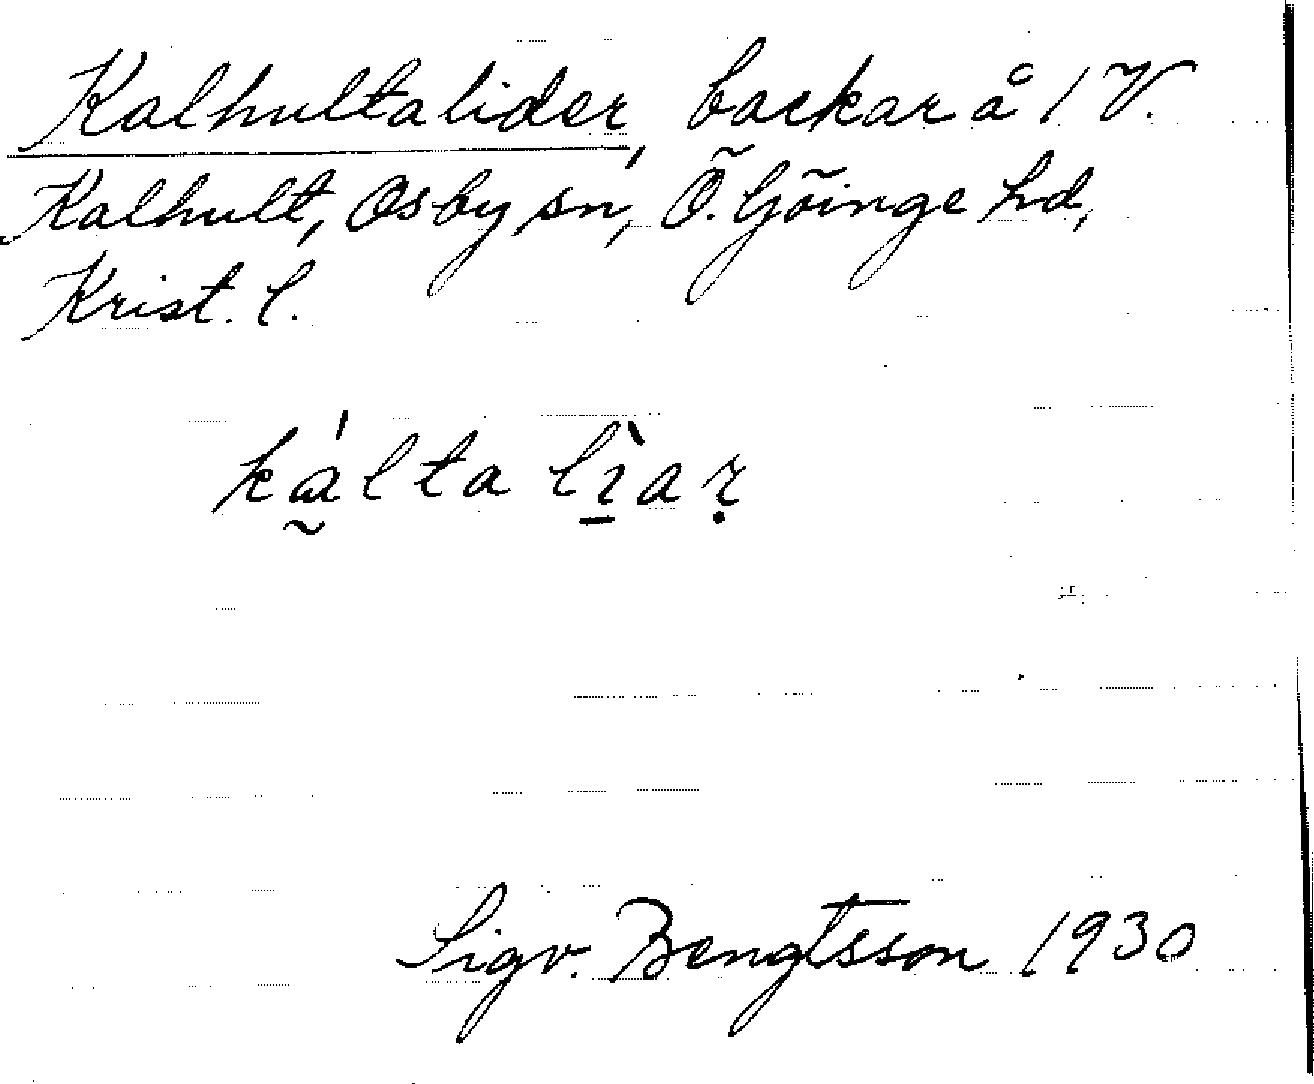 Kalhultalider, backar å 1 V.
Kalhult, Osby sn, Ö. Göinge hd,
Krist. l.
ká̰lta lì̱aṛ
Sigv. Bengtsson 1930